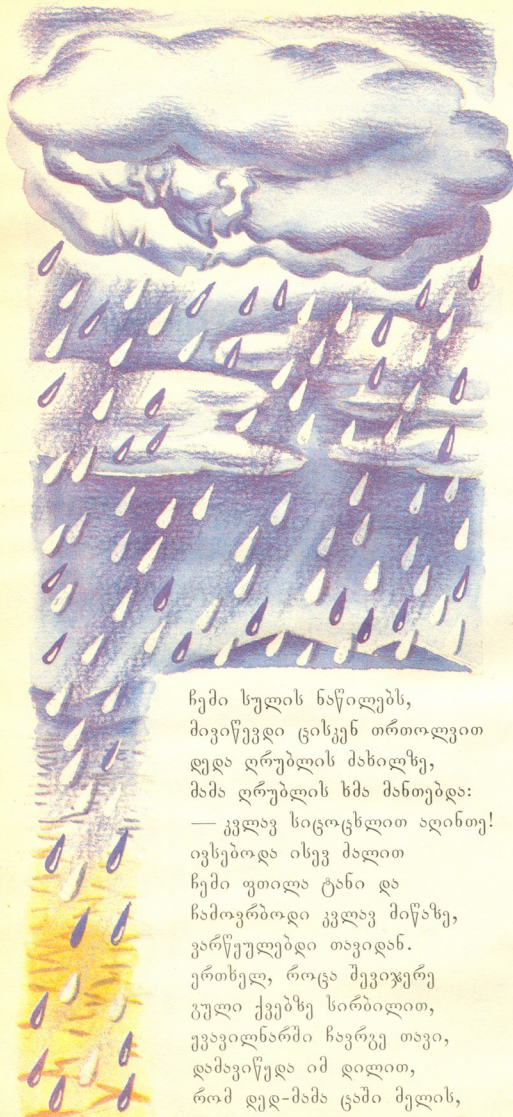 ჩემი სულის ნაწილებს,
მივიწევდი ცისკენ თრთოლვით
დედა ღრუბლის ძახილზე,
მამა ღრუბლის ხმა მანთებდა:
— კვლავ სიცოცხლით აღინთე!
ივსებოდა ისევ ძალით
ჩემი ფთილა ტანი და
ჩამოვრბოდი კვლავ მიწაზე,
ვარწყულებდი თავიდან.
ერთხელ, როცა შევიჯერე
გული ქვებზე სირბილით,
ყვავილნარში ჩავრგე თავი,
დამავიწყდა იმ დილით,
რომ დედ-მამა ცაში მელის,